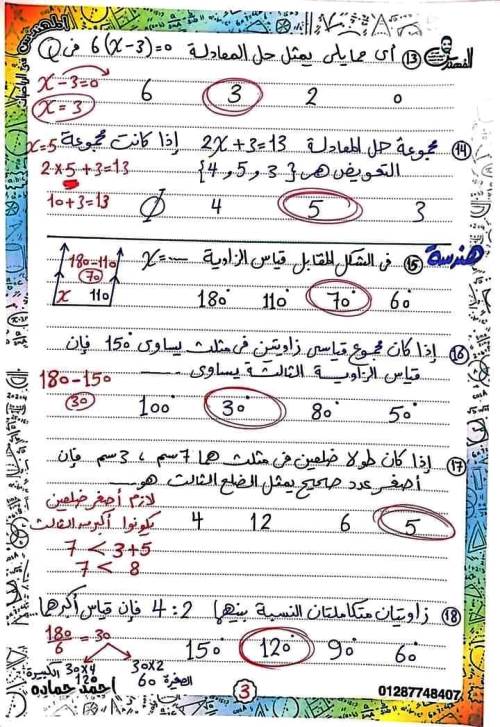 الفهد فى الرياضيات
الفهد
⑬ أى مما يلى يمثل حل المعادلة 6(x-3)=0 فى Q
x-3=0
x=3
6 3 2 0
⑭ مجموعة حل المعادلة 2x+3=13 إذا كانت مجموعة
التعويض هى {3 , 5 , 4}
x=5
2×5+3=13
10+3=13
∅ 4 5 3
هندسة
⑮ فى الشكل المقابل قياس الزاوية x=......
180-110
70
x 110
180° 110° 70° 60°
⑯ إذا كان مجموع قياسى زاويتين فى مثلث يساوى 150° فإن
قياس الزاوية الثالثة يساوى ......
180-150
30
100° 30° 80° 50°
⑰ إذا كان طولا ضلعين فى مثلث هما 7سم ، 3سم فإن
أصغر عدد صحيح يمثل الضلع الثالث هو......
لازم أصغر ضلعين
يكونوا أكبر من الثالث
7 < 3+5
7 < 8
4 12 6 5
⑱ زاويتان متكاملتان النسبة بينهما 4:2 فإن قياس أكبرها
180/6 = 30
150° 120° 90° 60°
الكبيرة 30×4
120
30×2
60 الصغرة
احمد حماده
3
01287748407